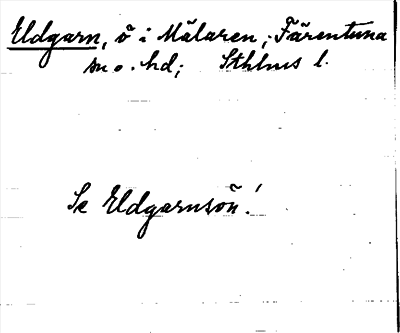 Eldgarn, ö i Mälaren; Färentuna
sn o. hd; Sthlms l.
Se Eldgarnsön!